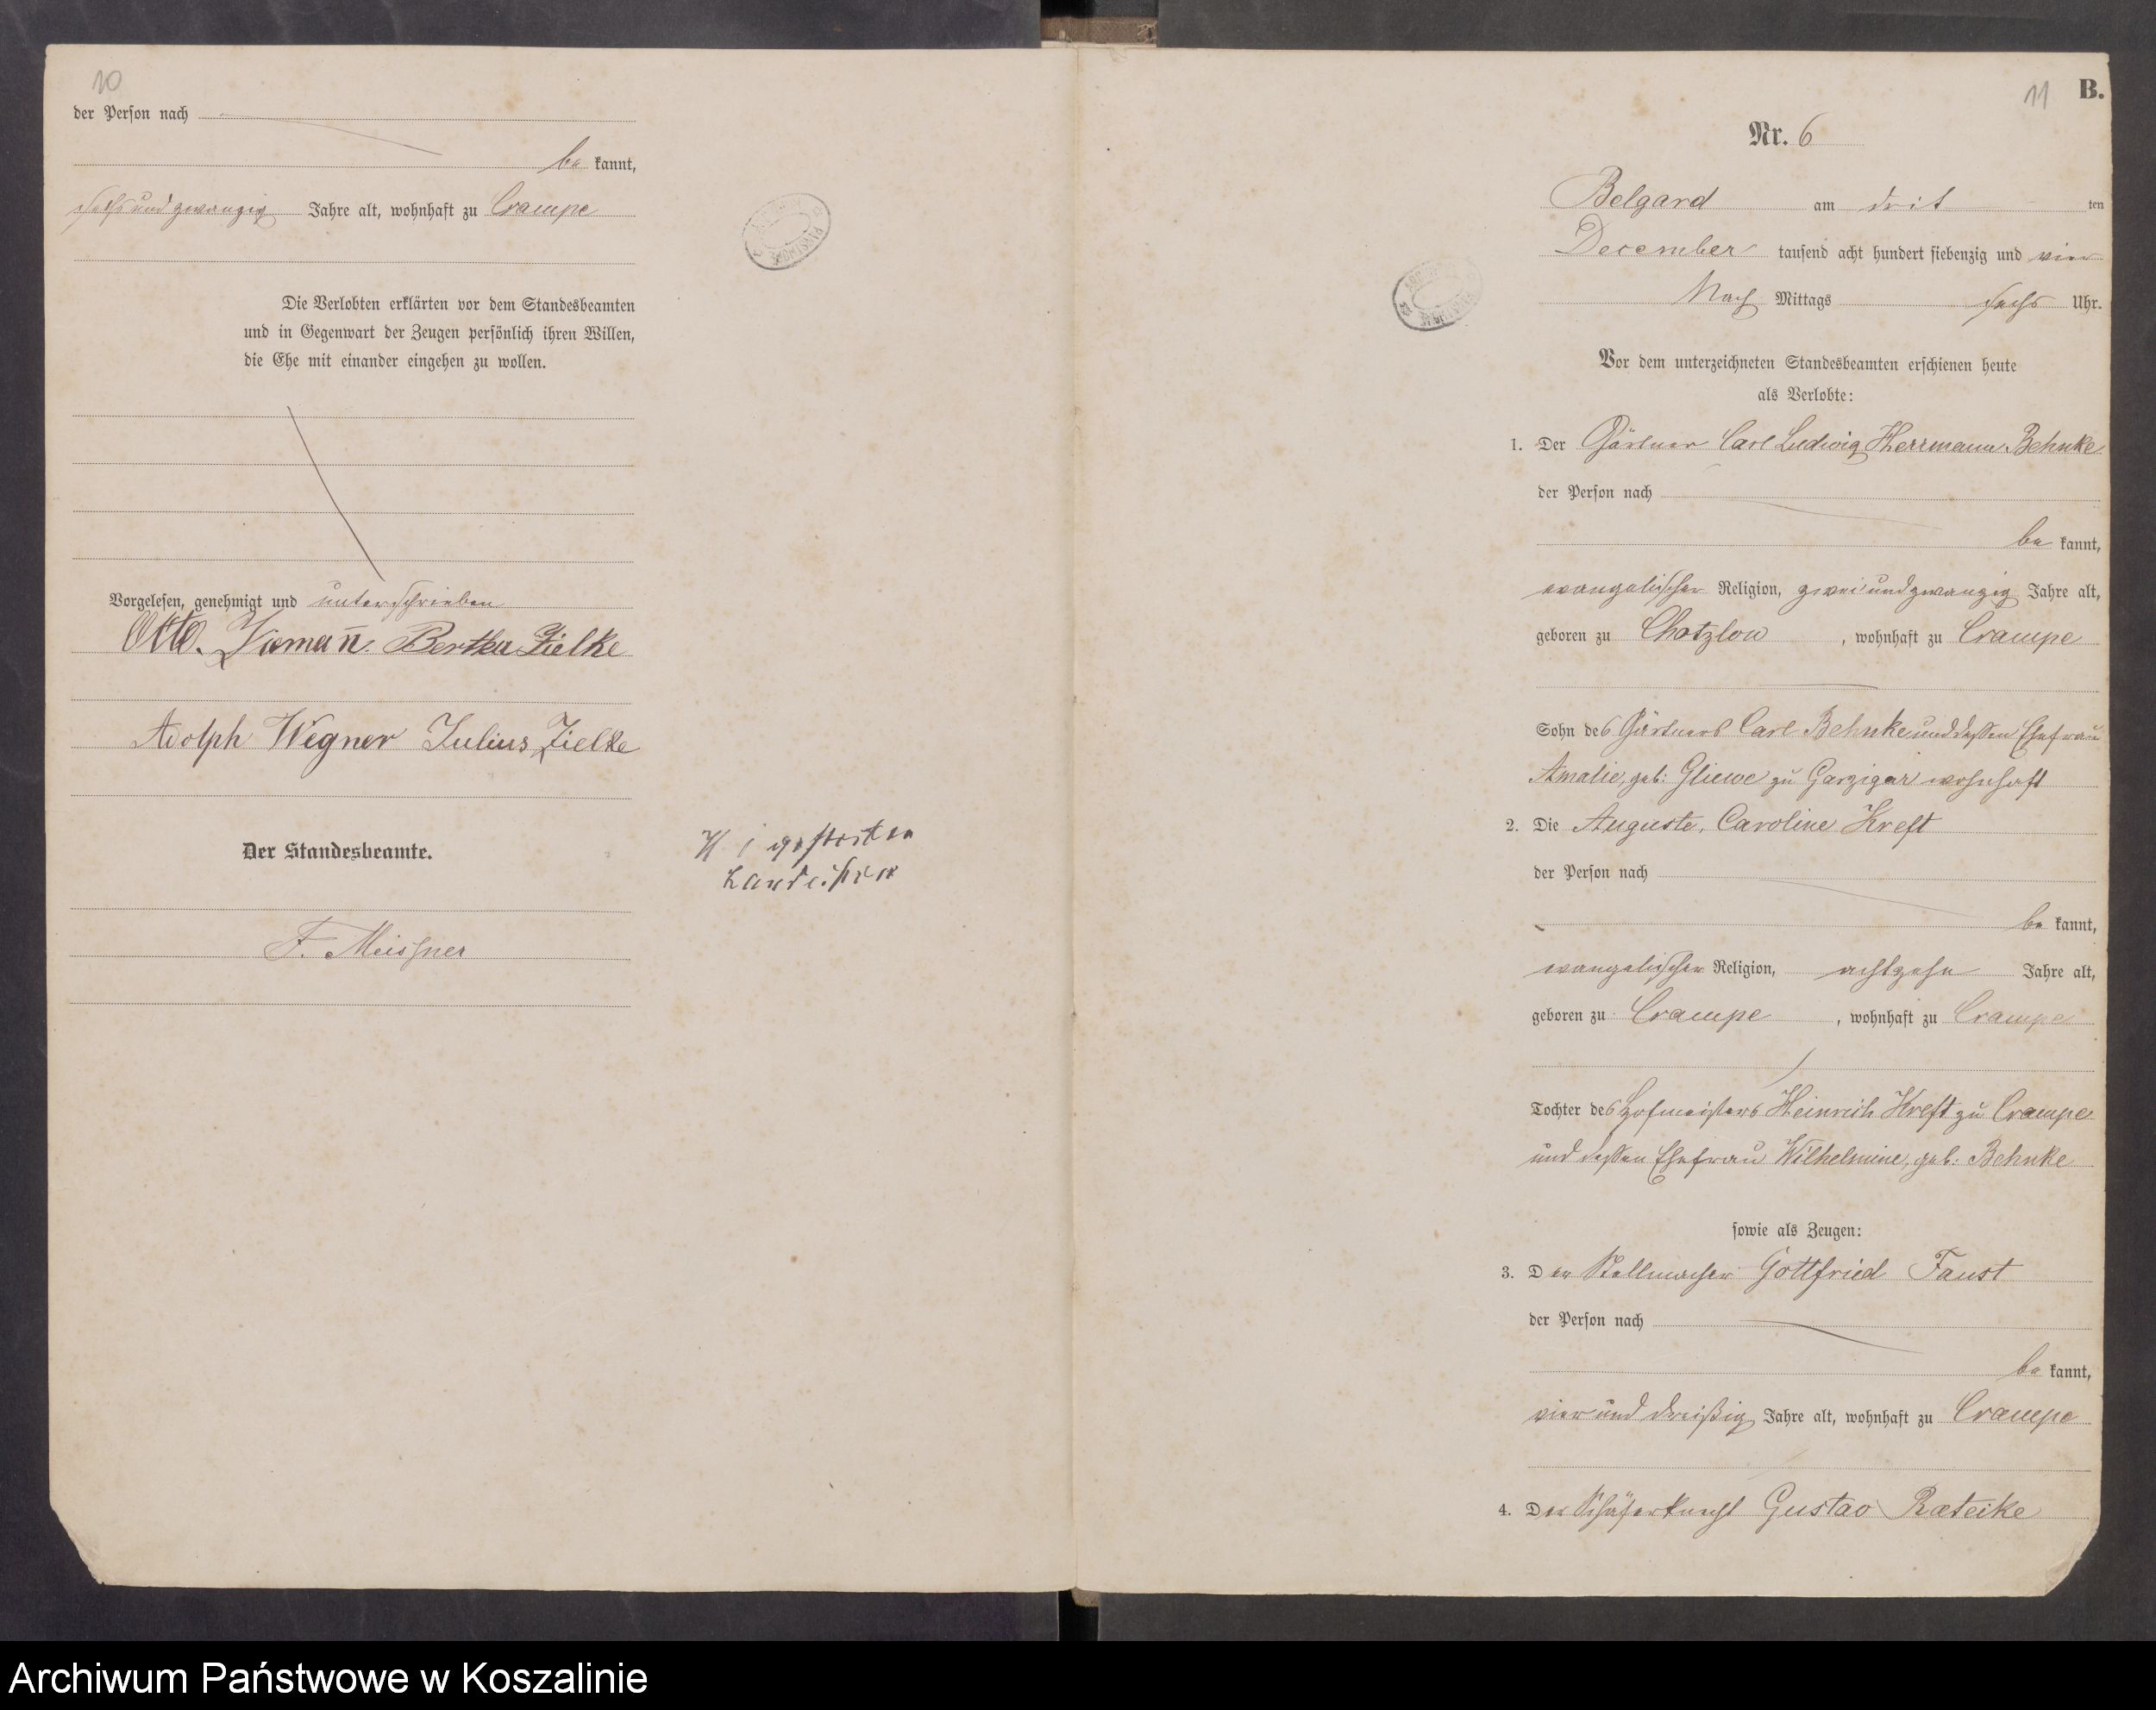 10
der Person nach
be kannt,
sechs und zwanzig Jahre alt, wohnhaft zu Crampe
Die Verlobten erklärten vor dem Standesbeamten
und in Gegenwart der Zeugen persönlich ihren Willen,
die Ehe mit einander eingehen zu wollen.
Vorgelesen, genehmigt und unterschrieben
Otto Ziemañ. Bertha Zielke
Adolph Wegner Julius Zielke
Der Standesbeamte.
F. Meissner
11 B.
Nr. 6
Belgard am drit ten
December tausend acht hundert siebenzig und vier
Nach Mittags sechs Uhr.
Vor dem unterzeichneten Standesbeamten erschienen heute
als Verlobte:
1. Der Gärtner Carl Ludwig Herrmann Behnke
der Person nach
be kannt,
evangelischer Religion, zwei und zwanzig Jahre alt,
geboren zu Chotzlow, wohnhaft zu Crampe
Sohn des Gärtners Carl Behnke und dessen Ehefrau
Amalie, geb: Gliewe zu Garzigar wohnhaft
2. Die Auguste, Caroline Kreft
der Person nach
be kannt,
evangelischer Religion, achtzehn Jahre alt,
geboren zu Crampe, wohnhaft zu Crampe
Tochter des Hofmeisters Heinrich Kreft zu Crampe
und dessen Ehefrau Wilhelmine, geb: Behnke
sowie als Zeugen:
3. Der Stellmacher Gottfried Faust
der Person nach
be kannt,
vier und dreißig Jahre alt, wohnhaft zu Crampe
4. Der Schäferknecht Gustav Rateike
Archiwum Państwowe w Koszalinie